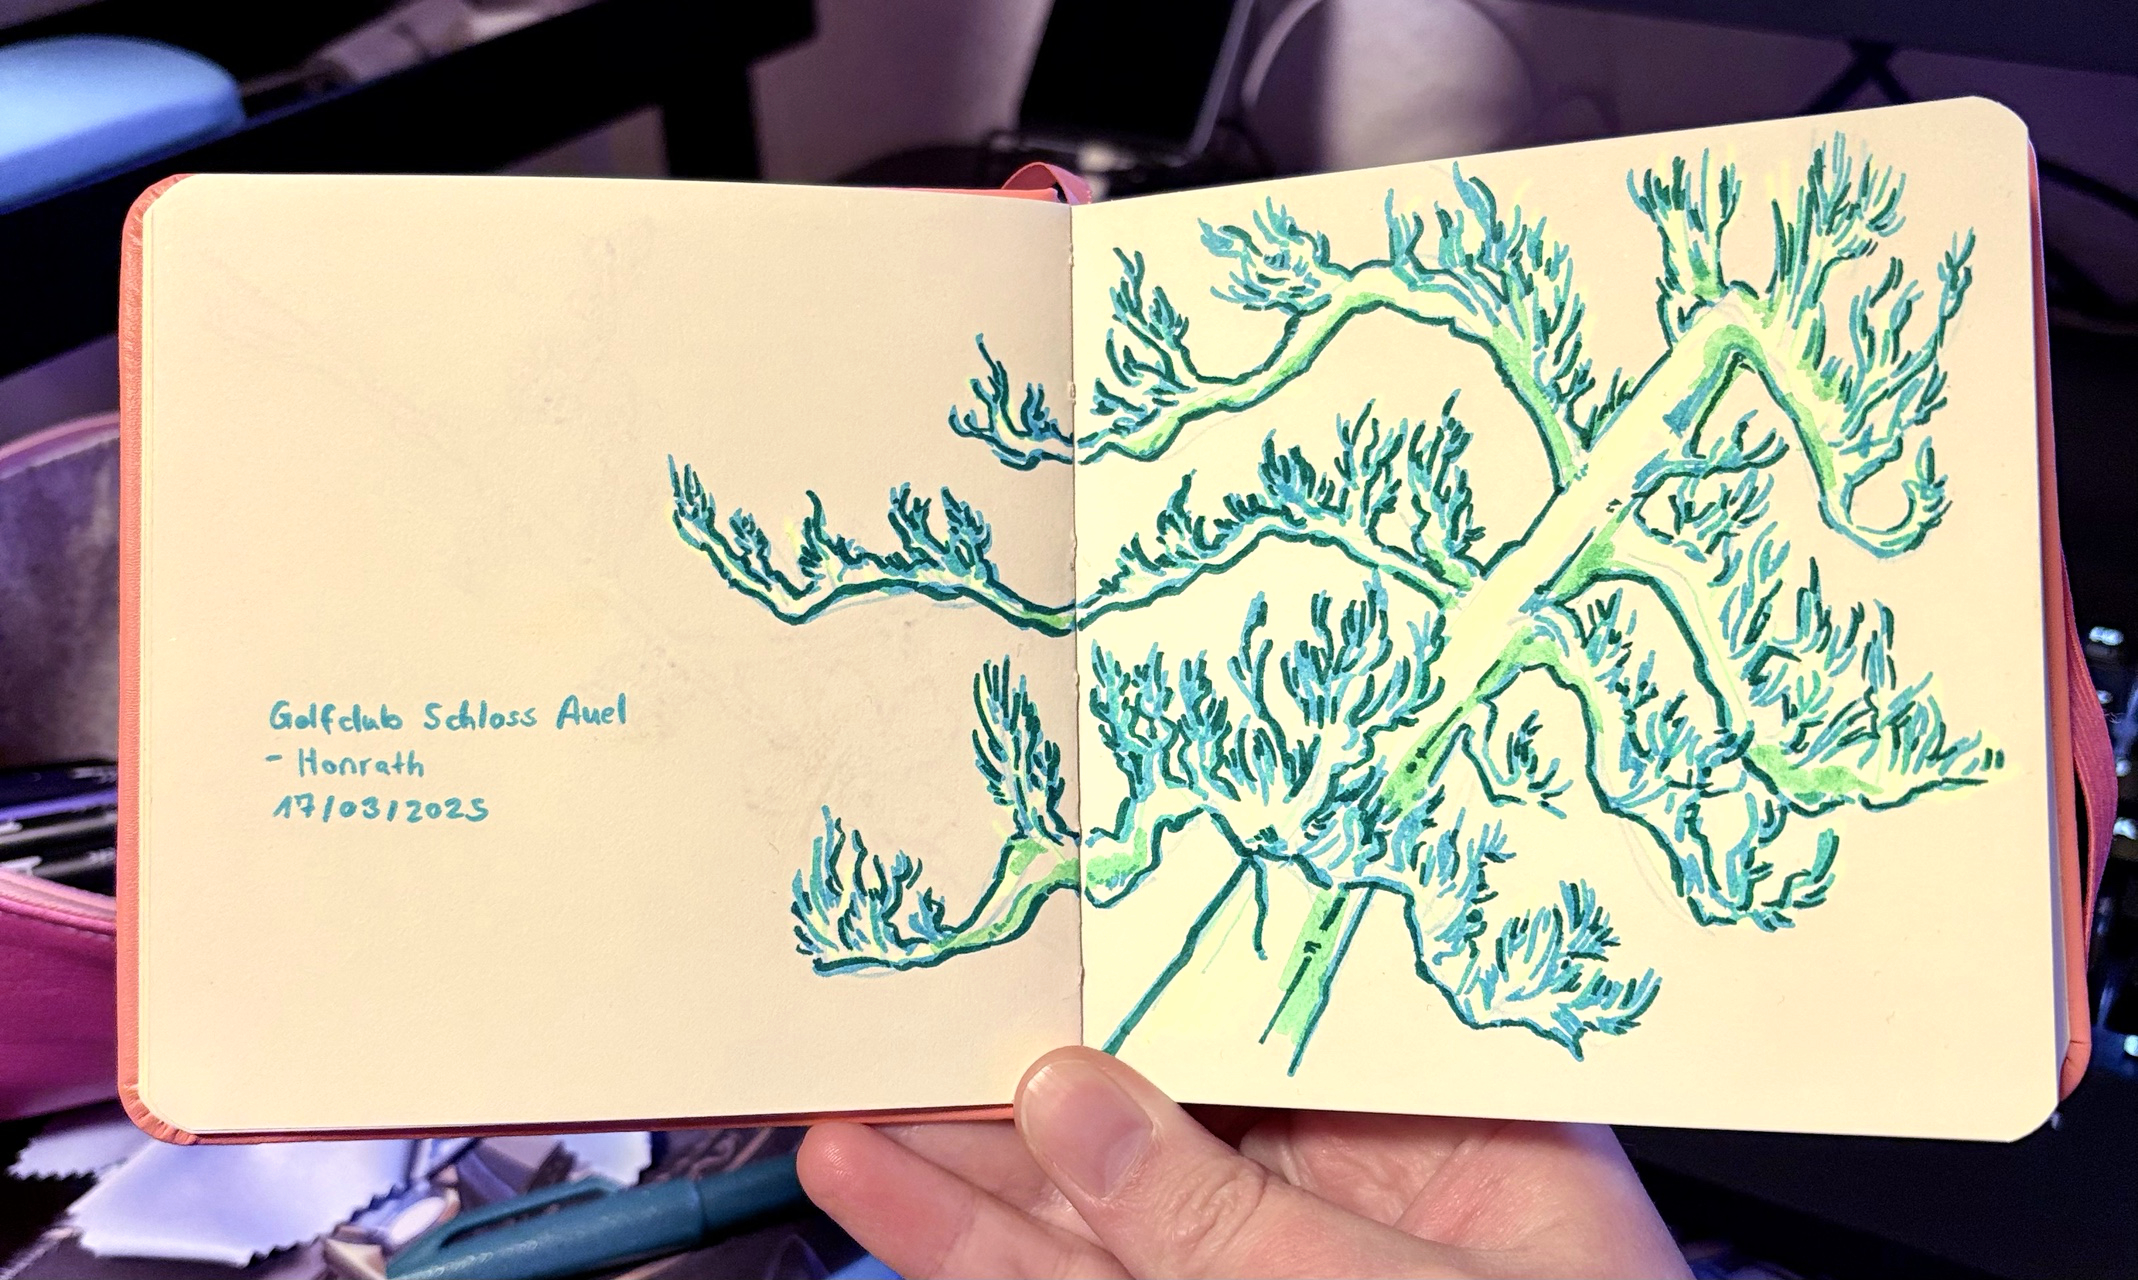 Golfclub Schloss Auel
- Honrath
17/03/2025